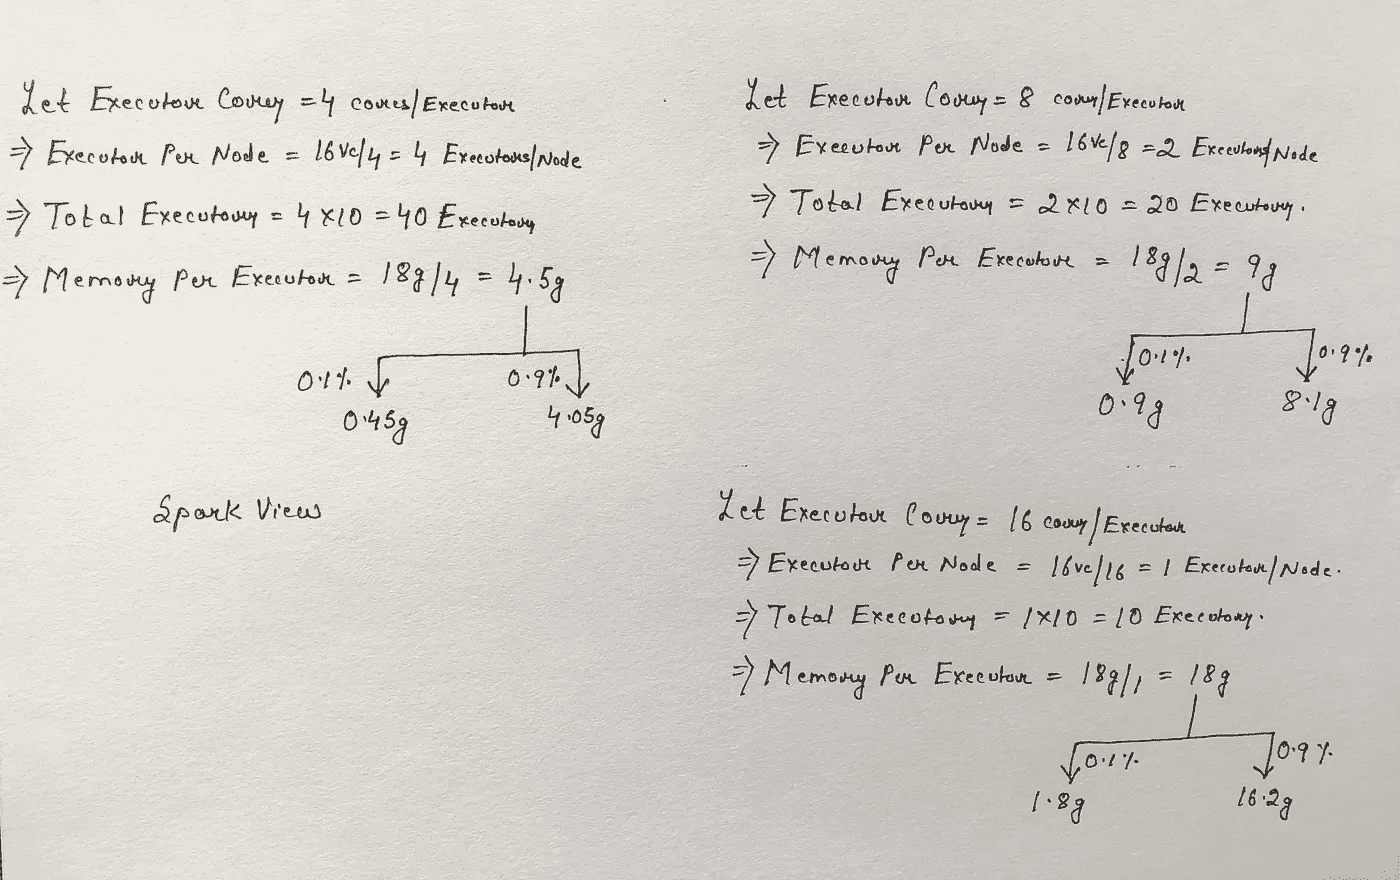 Let Executor Cores = 4 cores/Executor
⇒ Executor Per Node = 16vc/4 = 4 Executors/Node
⇒ Total Executors = 4 x 10 = 40 Executors
⇒ Memory Per Executor = 18g/4 = 4.5g
0.1% 0.9%
0.45g 4.05g
Spark View
Let Executor Cores = 8 cores/Executor
⇒ Executor Per Node = 16vc/8 = 2 Executors/Node
⇒ Total Executors = 2 x 10 = 20 Executors.
⇒ Memory Per Executor = 18g/2 = 9g
0.1% 0.9%
0.9g 8.1g
Let Executor Cores = 16 cores/Executor
⇒ Executor Per Node = 16vc/16 = 1 Executor/Node.
⇒ Total Executors = 1x10 = 10 Executors.
⇒ Memory Per Executor = 18g/1 = 18g
0.1% 0.9%
1.8g 16.2g